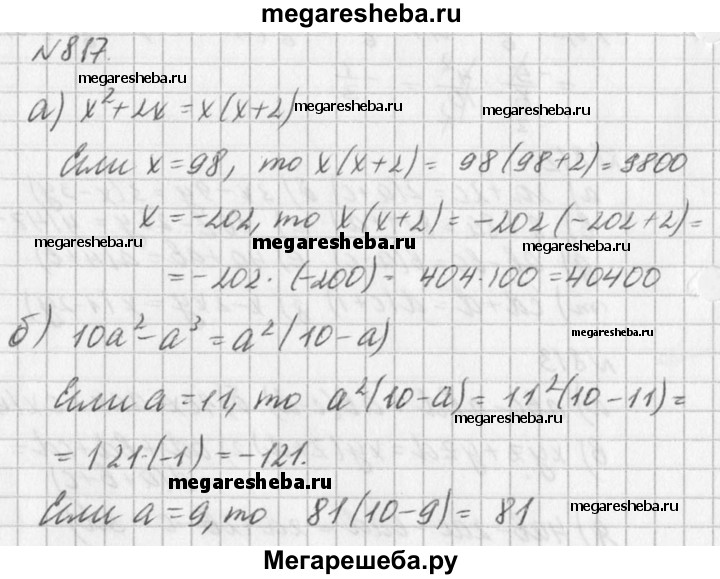 megaresheba.ru
№817.
megaresheba.ru
а) x²+2x = x(x+2) megaresheba.ru megaresheba.ru
Если x=98, то x(x+2) = 98(98+2)=9800
x=-202, то x(x+2) = -202(-202+2)=
megaresheba.ru megaresheba.ru megaresheba.ru
=-202·(-200) = 404·100=40400
б) 10a²-a³ = a²(10-a) megaresheba.ru
Если a=11, то a²(10-a) = 11²(10-11)=
megaresheba.ru
= 121·(-1) = -121.
megaresheba.ru
Если a=9, то 81(10-9) = 81 megaresheba.ru
Мегарешеба.ру